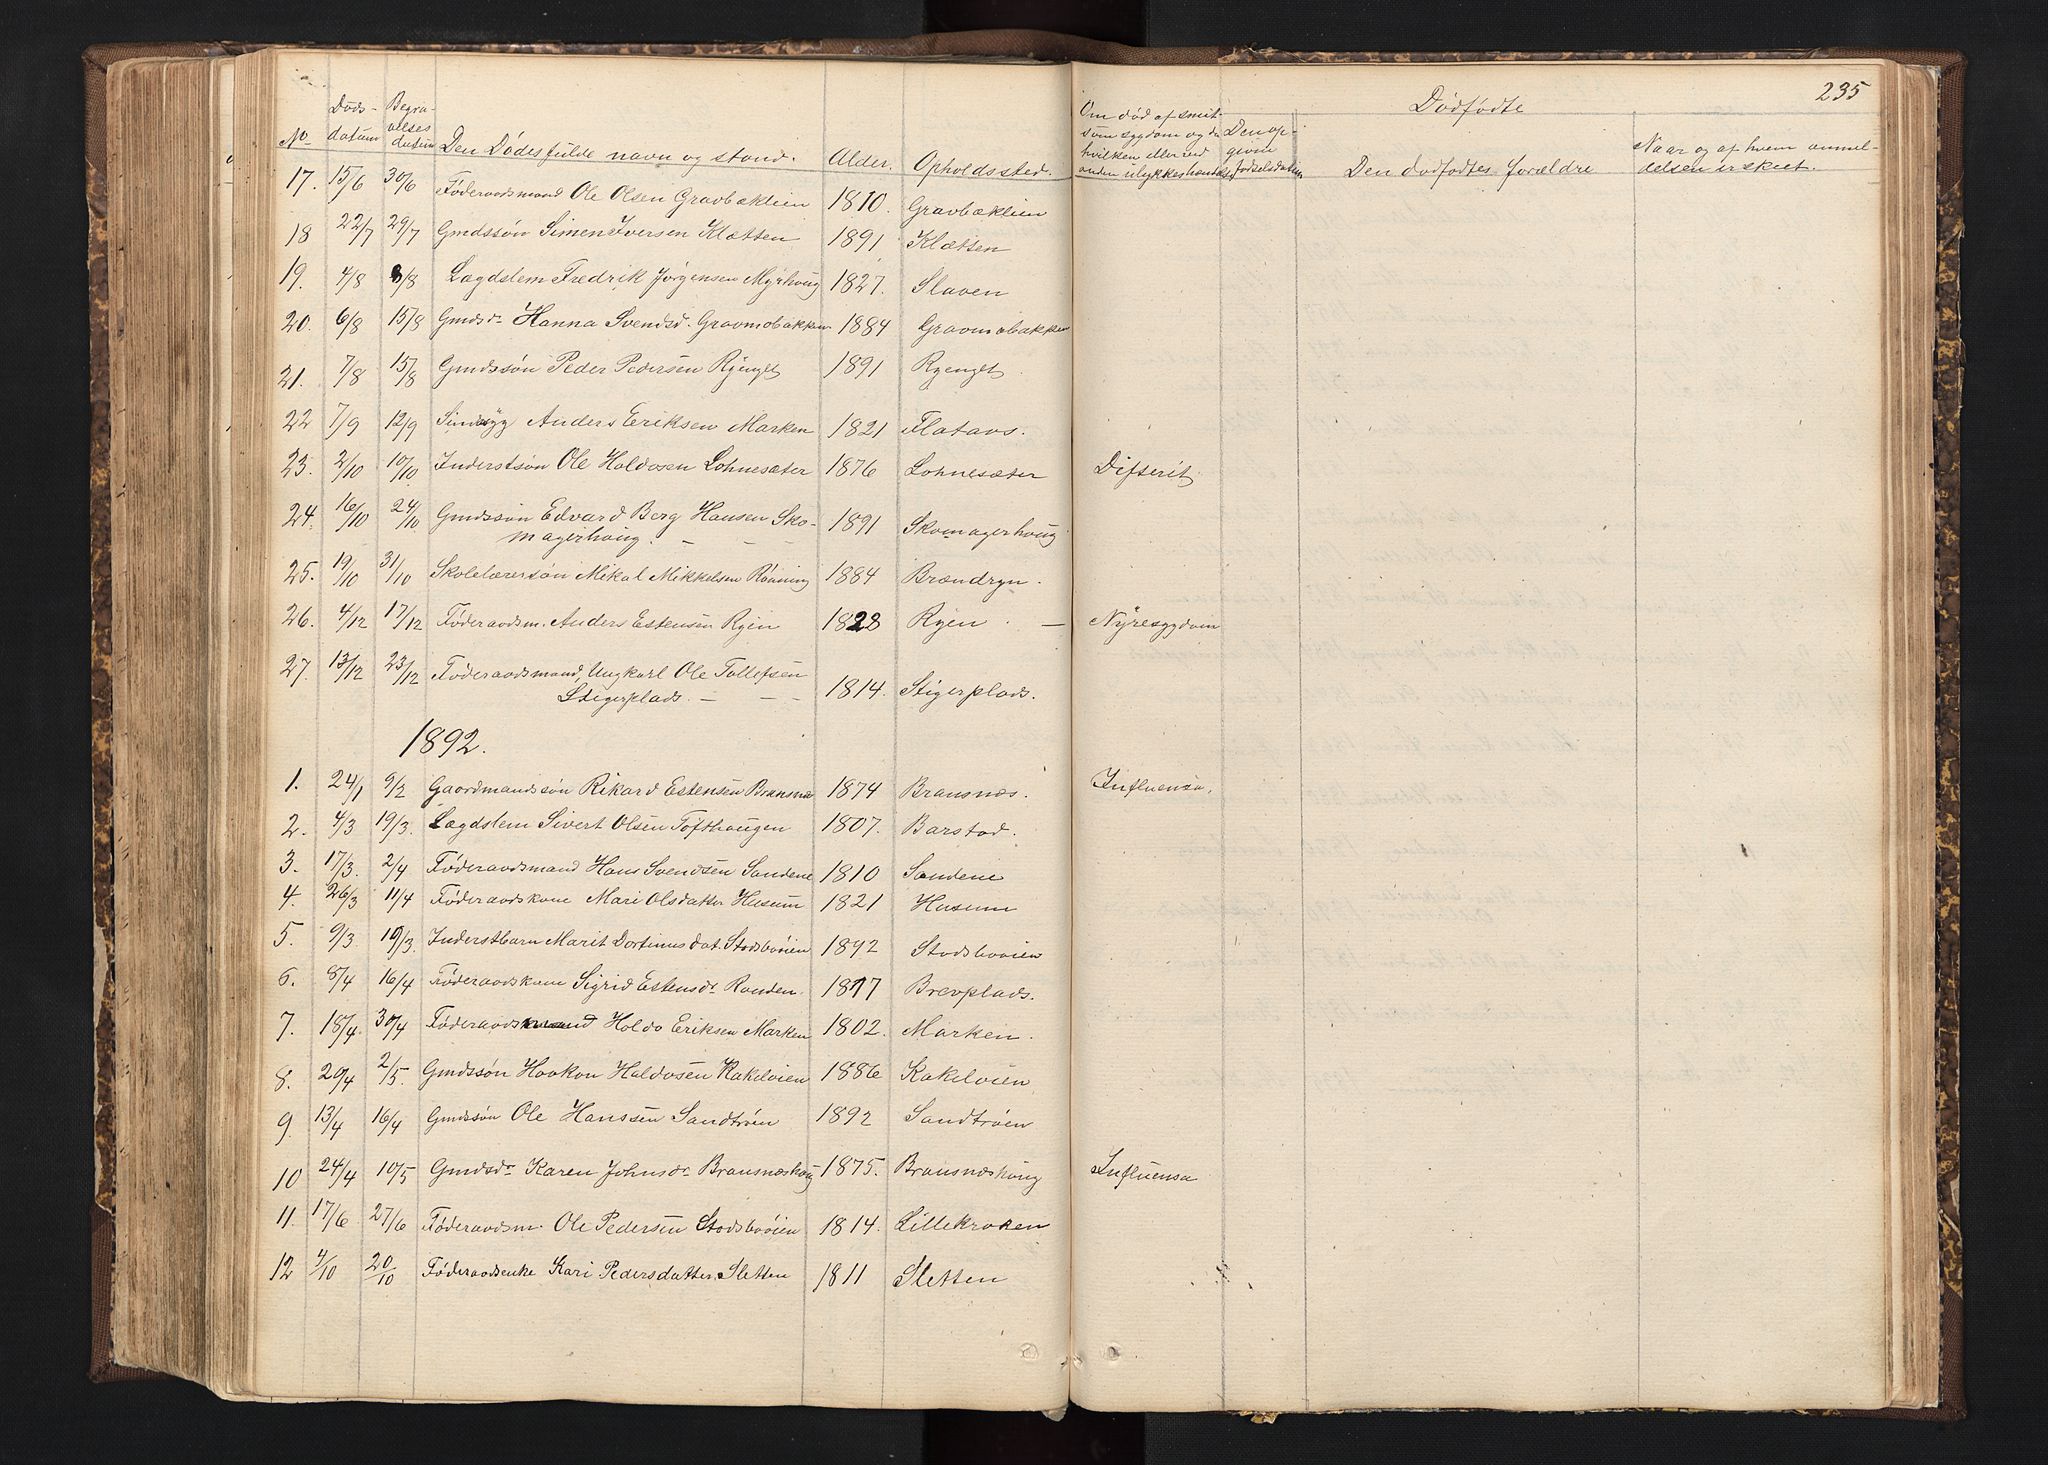 235
No Døds- datum Begra- velses datum Den Dødes fulde navn og stand. Alder. Opholdssted. Om død af smit- som sygdom og da hvilken eller ved anden ulykkeshændelse Den op- givne fødselsdatum Dødfødte Den dødfødtes forældre Naar og af hvem anmel- delsen er skeet.
17. 15/6 30/6 Føderaadsmand Ole Olsen Gravbæklien 1810. Gravbæklien
18 22/7 29/7 Gmdssøn Simen Iversen Klætten 1891 Klætten
19. 4/8 8/8 Lægdslem Fredrik Jørgensen Myrhoug 1827. Slaven
20. 6/8 15/8 Gmdsdr Hanna Svendsd. Gravmobakken 1884 Gravmobakken
21. 7/8 15/8 Gmdssøn Peder Pedersen Ryenget 1891 Ryenget
22 7/9 12/9 Sindssyg Anders Eriksen Marken 1821 Flataas.
23. 2/10 10/10. Inderstsøn Ole Haldosen Lohnesæter 1876 Lohnesæter Difterit
24. 16/10 24/10 Gmdssøn Edvard Berg Hansen Sko-
magerhoug. - - - 1891 Skomagerhoug
25. 19/10 31/10 Skolelærersøn Mikal Mikkelsen Rønning 1884 Brændryn.
26. 4/12 17/12 Føderaadsm. Anders Estensen Ryen 1828 Ryen. - Nyresygdom
27. 13/12 23/12 Føderaadsmand, Ungkarl Ole Tollefsen
Stigerplads. - - - 1814. Stigerplads.
1892.
1. 24/1 9/2 Gaardmandssøn Rikard Estensen Bransnæs 1874 Bransnæs. Influensa.
2. 4/3 19/3. Lægdslem Sivert Olsen Tofthaugen 1807. Barstad.
3. 17/3. 2/4 Føderaadsmand Hans Svendsen Sandene 1810 Sandene
4. 26/3 11/4 Føderaadskone Mari Olsdatter Husum 1821 Husum
5. 9/3. 19/3. Inderstbarn Marit Dortinusdat. Stadsbøien 1892 Stadsbøien
6. 8/4 16/4 Føderaadskone Sigrid Estensdr Ronden. 1817 Brevplads.
7. 18/4. 30/4 Føderaadsmand Haldo Eriksen Marken 1802. Marken.
8. 20/4 2/5. Gmdssøn Haakon Haldosen Kakelvien 1886 Kakelvien
9. 13/4 16/4 Gmdssøn Ole Hanssen Sandtrøen 1892 Sandtrøen
10 24/4 10/5 Gmdsdr Karen Johnsdr Bransnæshoug 1875. Bransnæshoug Influensa
11. 17/6 27/6 Føderaadsm. Ole Pedersen Stadsbøien 1814. Lillekroken
12 4/10 20/10 Føderaadsenke Kari Pedersdatter Sletten 1811 Sletten